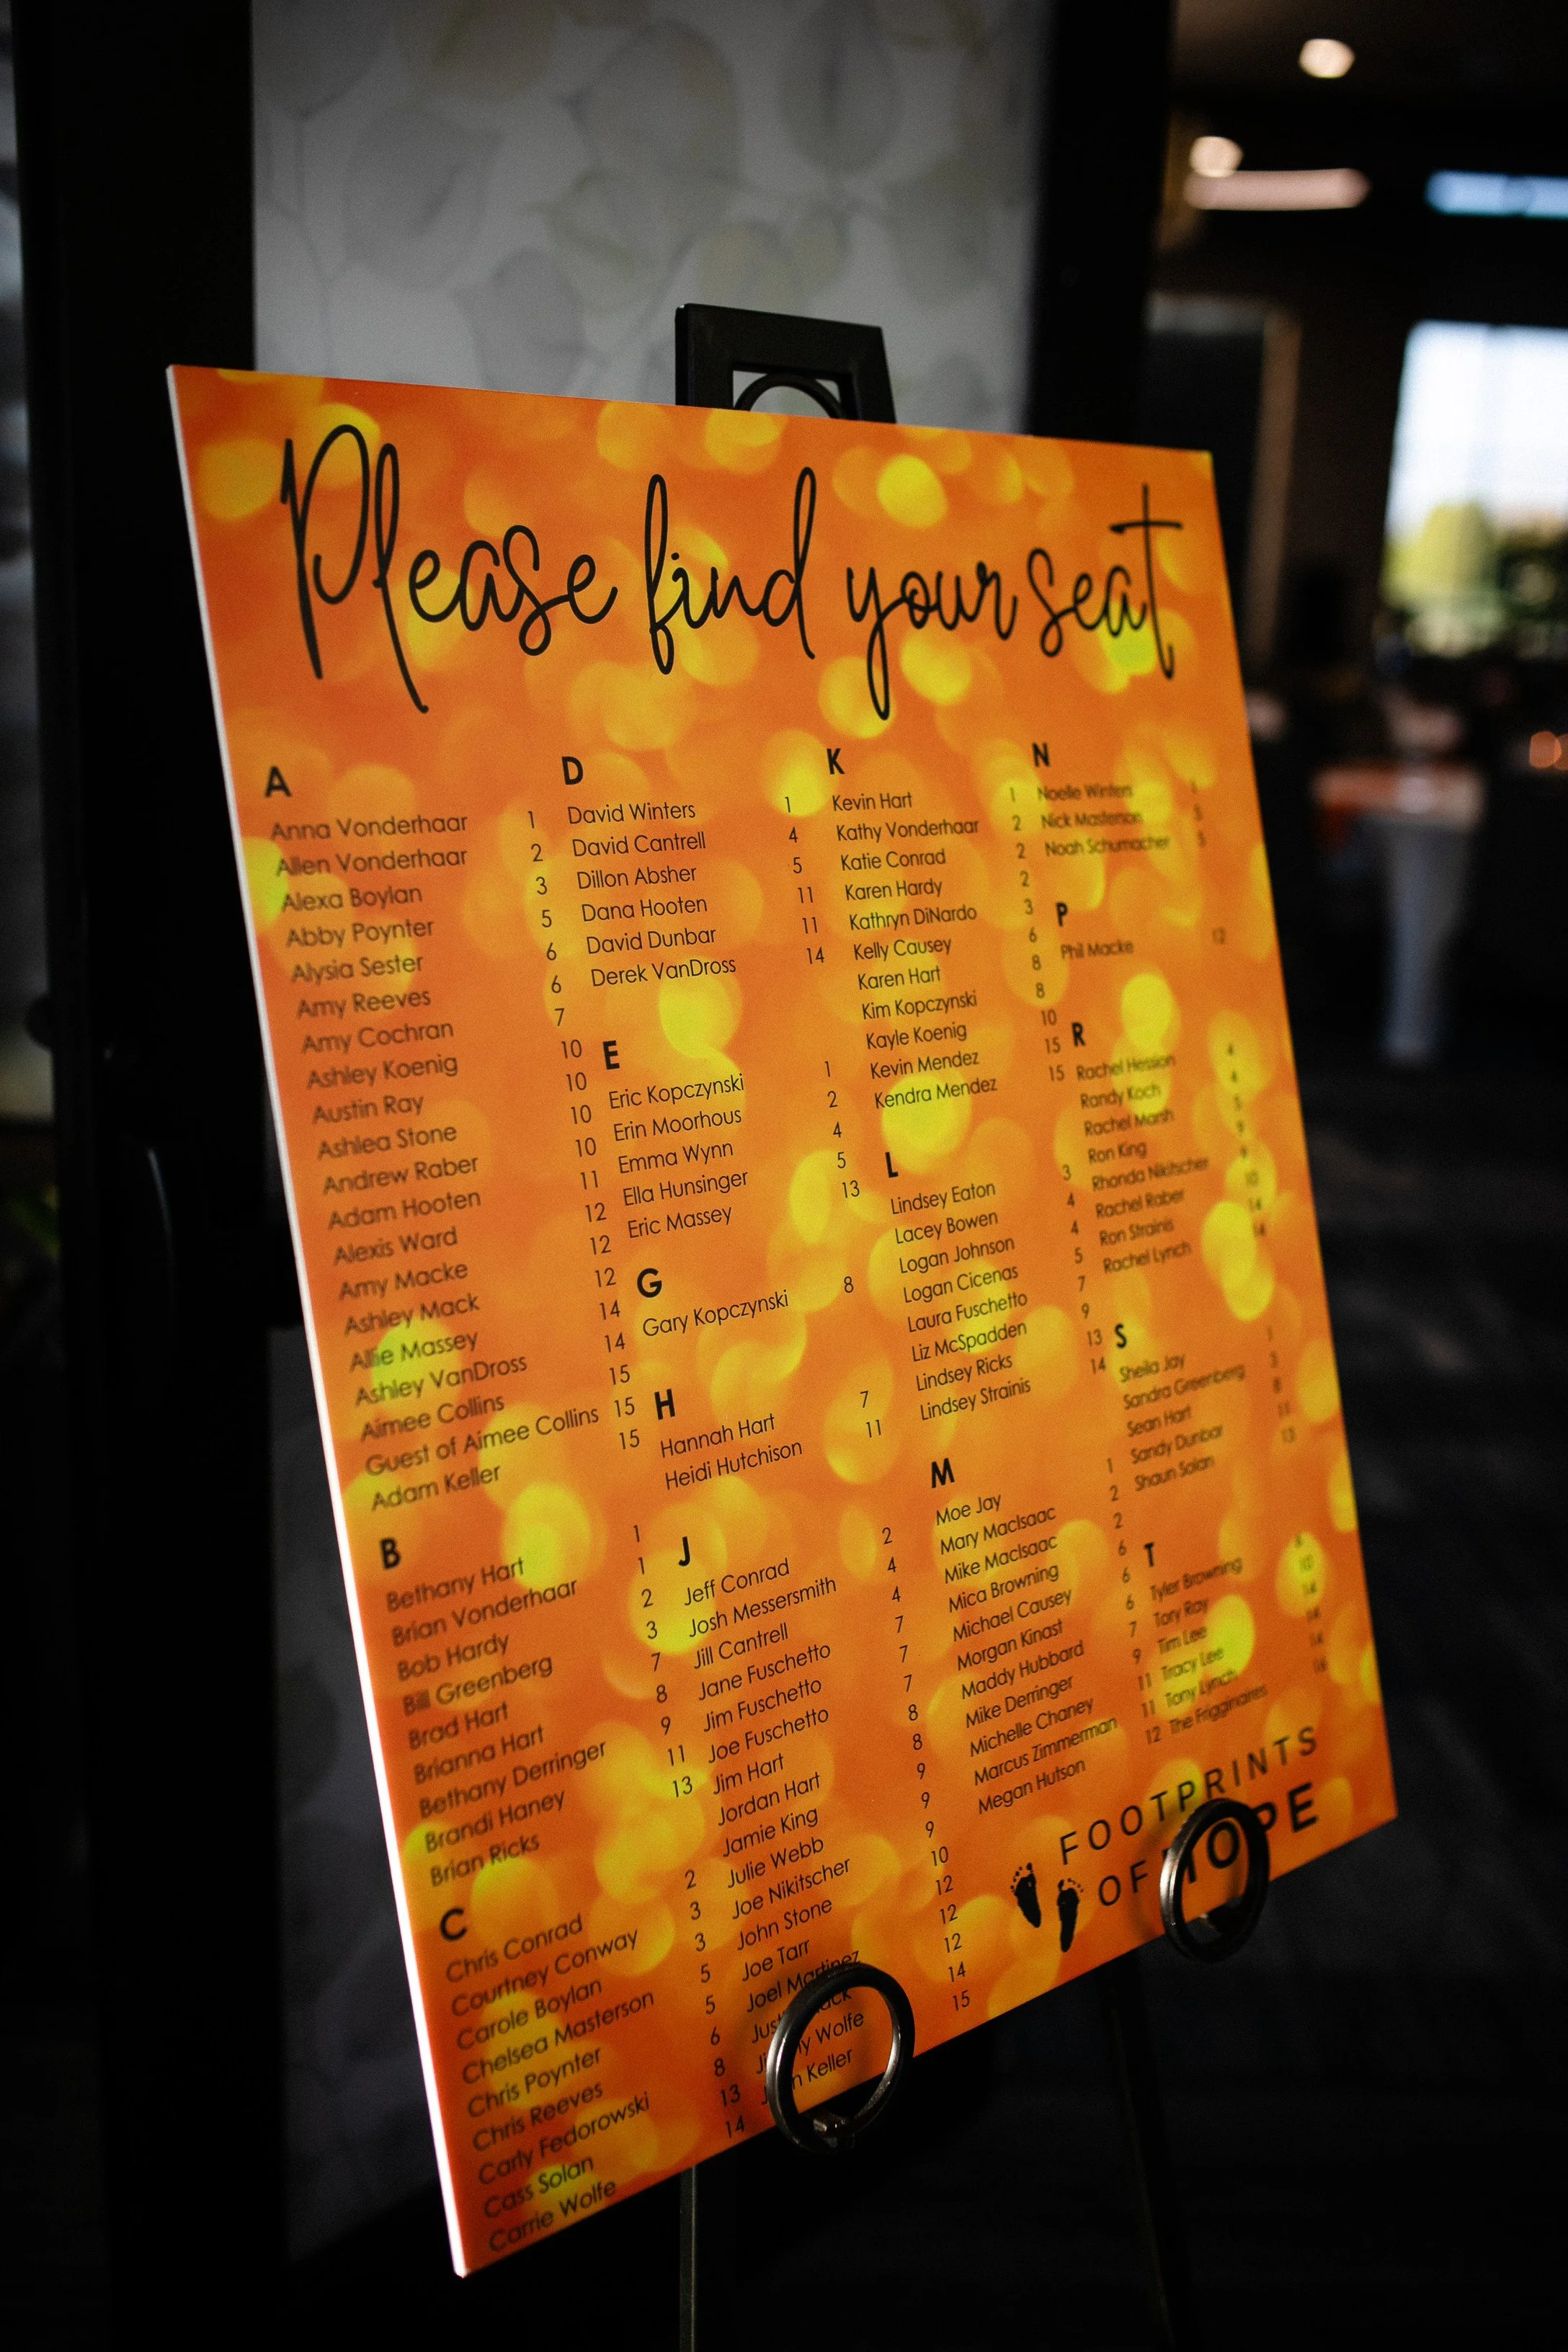 Please find your seat
A
Anna Vonderhaar 1
Allen Vonderhaar 2
Alexa Boylan 3
Abby Poynter 5
Alysia Sester 6
Amy Reeves 6
Amy Cochran 7
Ashley Koenig 10
Austin Ray 10
Ashlea Stone 10
Andrew Raber 10
Adam Hooten 11
Alexis Ward 12
Amy Macke 12
Ashley Mack 12
Allie Massey 14
Ashley VanDross 14
Aimee Collins 15
Guest of Aimee Collins 15
Adam Keller 15
B
Bethany Hart 1
Brian Vonderhaar 1
Bob Hardy 2
Bill Greenberg 3
Brad Hart 7
Brianna Hart 8
Bethany Derringer 9
Brandi Haney 11
Brian Ricks 13
C
Chris Conrad 2
Courtney Conway 3
Carole Boylan 3
Chelsea Masterson 5
Chris Poynter 5
Chris Reeves 6
Carly Fedorowski 8
Cass Solan 13
Carrie Wolfe 14
D
David Winters 1
David Cantrell 4
Dillon Absher 5
Dana Hooten 11
David Dunbar 11
Derek VanDross 14
E
Eric Kopczynski 1
Erin Moorhous 2
Emma Wynn 4
Ella Hunsinger 5
Eric Massey 13
G
Gary Kopczynski 8
H
Hannah Hart 7
Heidi Hutchison 11
J
Jeff Conrad 2
Josh Messersmith 4
Jill Cantrell 4
Jane Fuschetto 7
Jim Fuschetto 7
Joe Fuschetto 7
Jim Hart 8
Jordan Hart 8
Jamie King 9
Julie Webb 9
Joe Nikitscher 9
John Stone 10
Joe Tarr 12
Joel Martinez 12
12
Wolfe 14
Keller 15
K
Kevin Hart 1
Kathy Vonderhaar 2
Katie Conrad 2
Karen Hardy 2
Kathryn DiNardo 3
Kelly Causey 6
Karen Hart 8
Kim Kopczynski 8
Kayle Koenig 10
Kevin Mendez 15
Kendra Mendez 15
L
Lindsey Eaton 3
Lacey Bowen 4
Logan Johnson 4
Logan Cicenas 5
Laura Fuschetto 7
Liz McSpadden 9
Lindsey Ricks 13
Lindsey Strainis 14
M
Moe Jay 1
Mary MacIsaac 2
Mike MacIsaac 2
Mica Browning 6
Michael Causey 6
Morgan Kinast 6
Maddy Hubbard 7
Mike Derringer 9
Michelle Chaney 11
Marcus Zimmerman 11
Megan Hutson 12
N
Noelle Winters 1
Nick Masterson 5
Noah Schumacher 5
P
Phil Macke 12
R
Rachel Hession 4
Randy Koch 4
Rachel Marsh 5
Ron King 9
Rhonda Nikitscher 9
Rachel Raber 10
Ron Strainis 14
Rachel Lynch 14
S
Sheila Jay 1
Sandra Greenberg 3
Sean Hart 8
Sandy Dunbar 11
Shaun Solan 13
T
Tyler Browning
Tory Ray 10
Tim Lee 14
Tracy Lee 14
Tony Lynch 14
The Frigginaires 16
FOOTPRINTS
OF HOPE